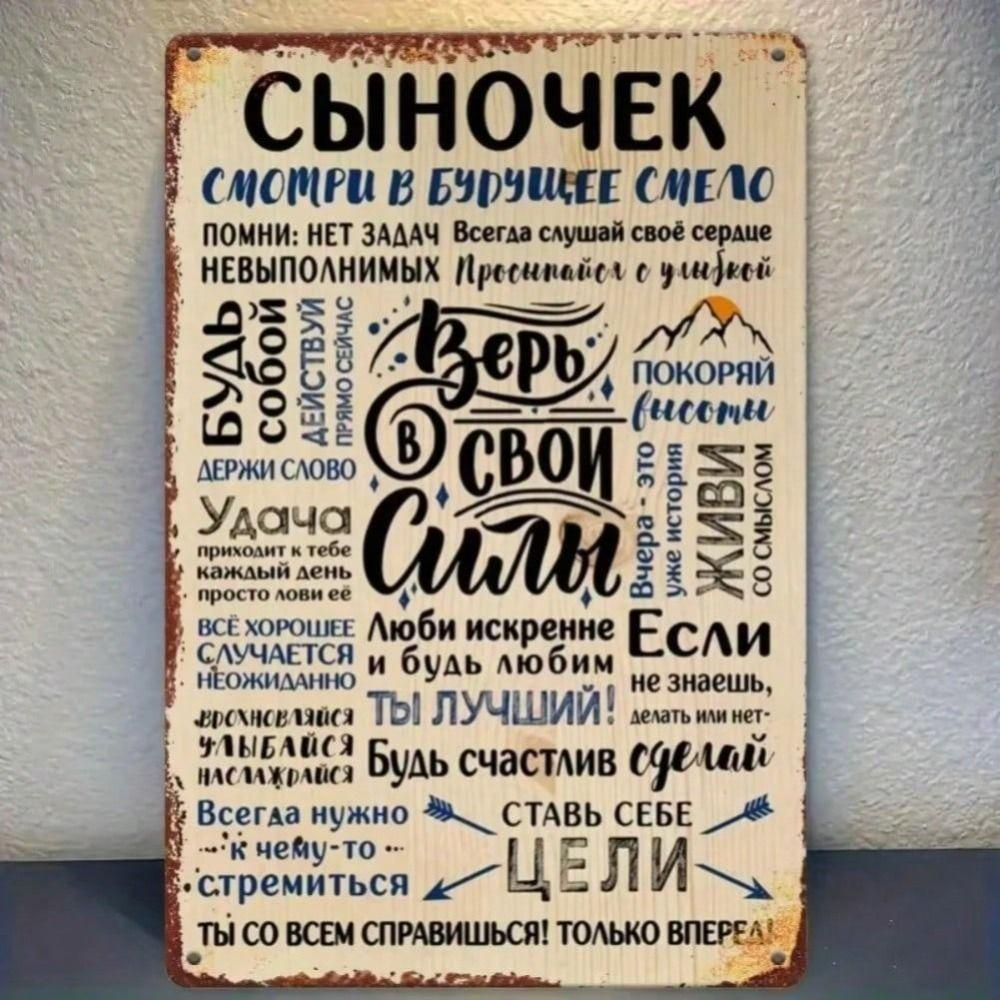 СЫНОЧЕК
СМОТРИ В БУДУЩЕЕ СМЕЛО
ПОМНИ: НЕТ ЗАДАЧ
НЕВЫПОЛНИМЫХ
Всегда слушай своё сердце
Просыпайся с улыбкой
БУДЬ
собой
ДЕЙСТВУЙ
ПРЯМО СЕЙЧАС
Верь
в свои
Силы
ПОКОРЯЙ
высоты
ДЕРЖИ СЛОВО
Удача
приходит к тебе
каждый день
просто лови её
Вчера - это
уже история
ЖИВИ
СО СМЫСЛОМ
ВСЁ ХОРОШЕЕ
СЛУЧАЕТСЯ
НЕОЖИДАННО
Люби искренне
и будь любим
ТЫ ЛУЧШИЙ!
Если
не знаешь,
делать или нет-
сделай
ВДОХНОВЛЯЙСЯ
УЛЫБАЙСЯ
НАСЛАЖДАЙСЯ
Будь счастлив
Всегда нужно
к чему-то
стремиться
СТАВЬ СЕБЕ
ЦЕЛИ
ТЫ СО ВСЕМ СПРАВИШЬСЯ! ТОЛЬКО ВПЕРЕД!